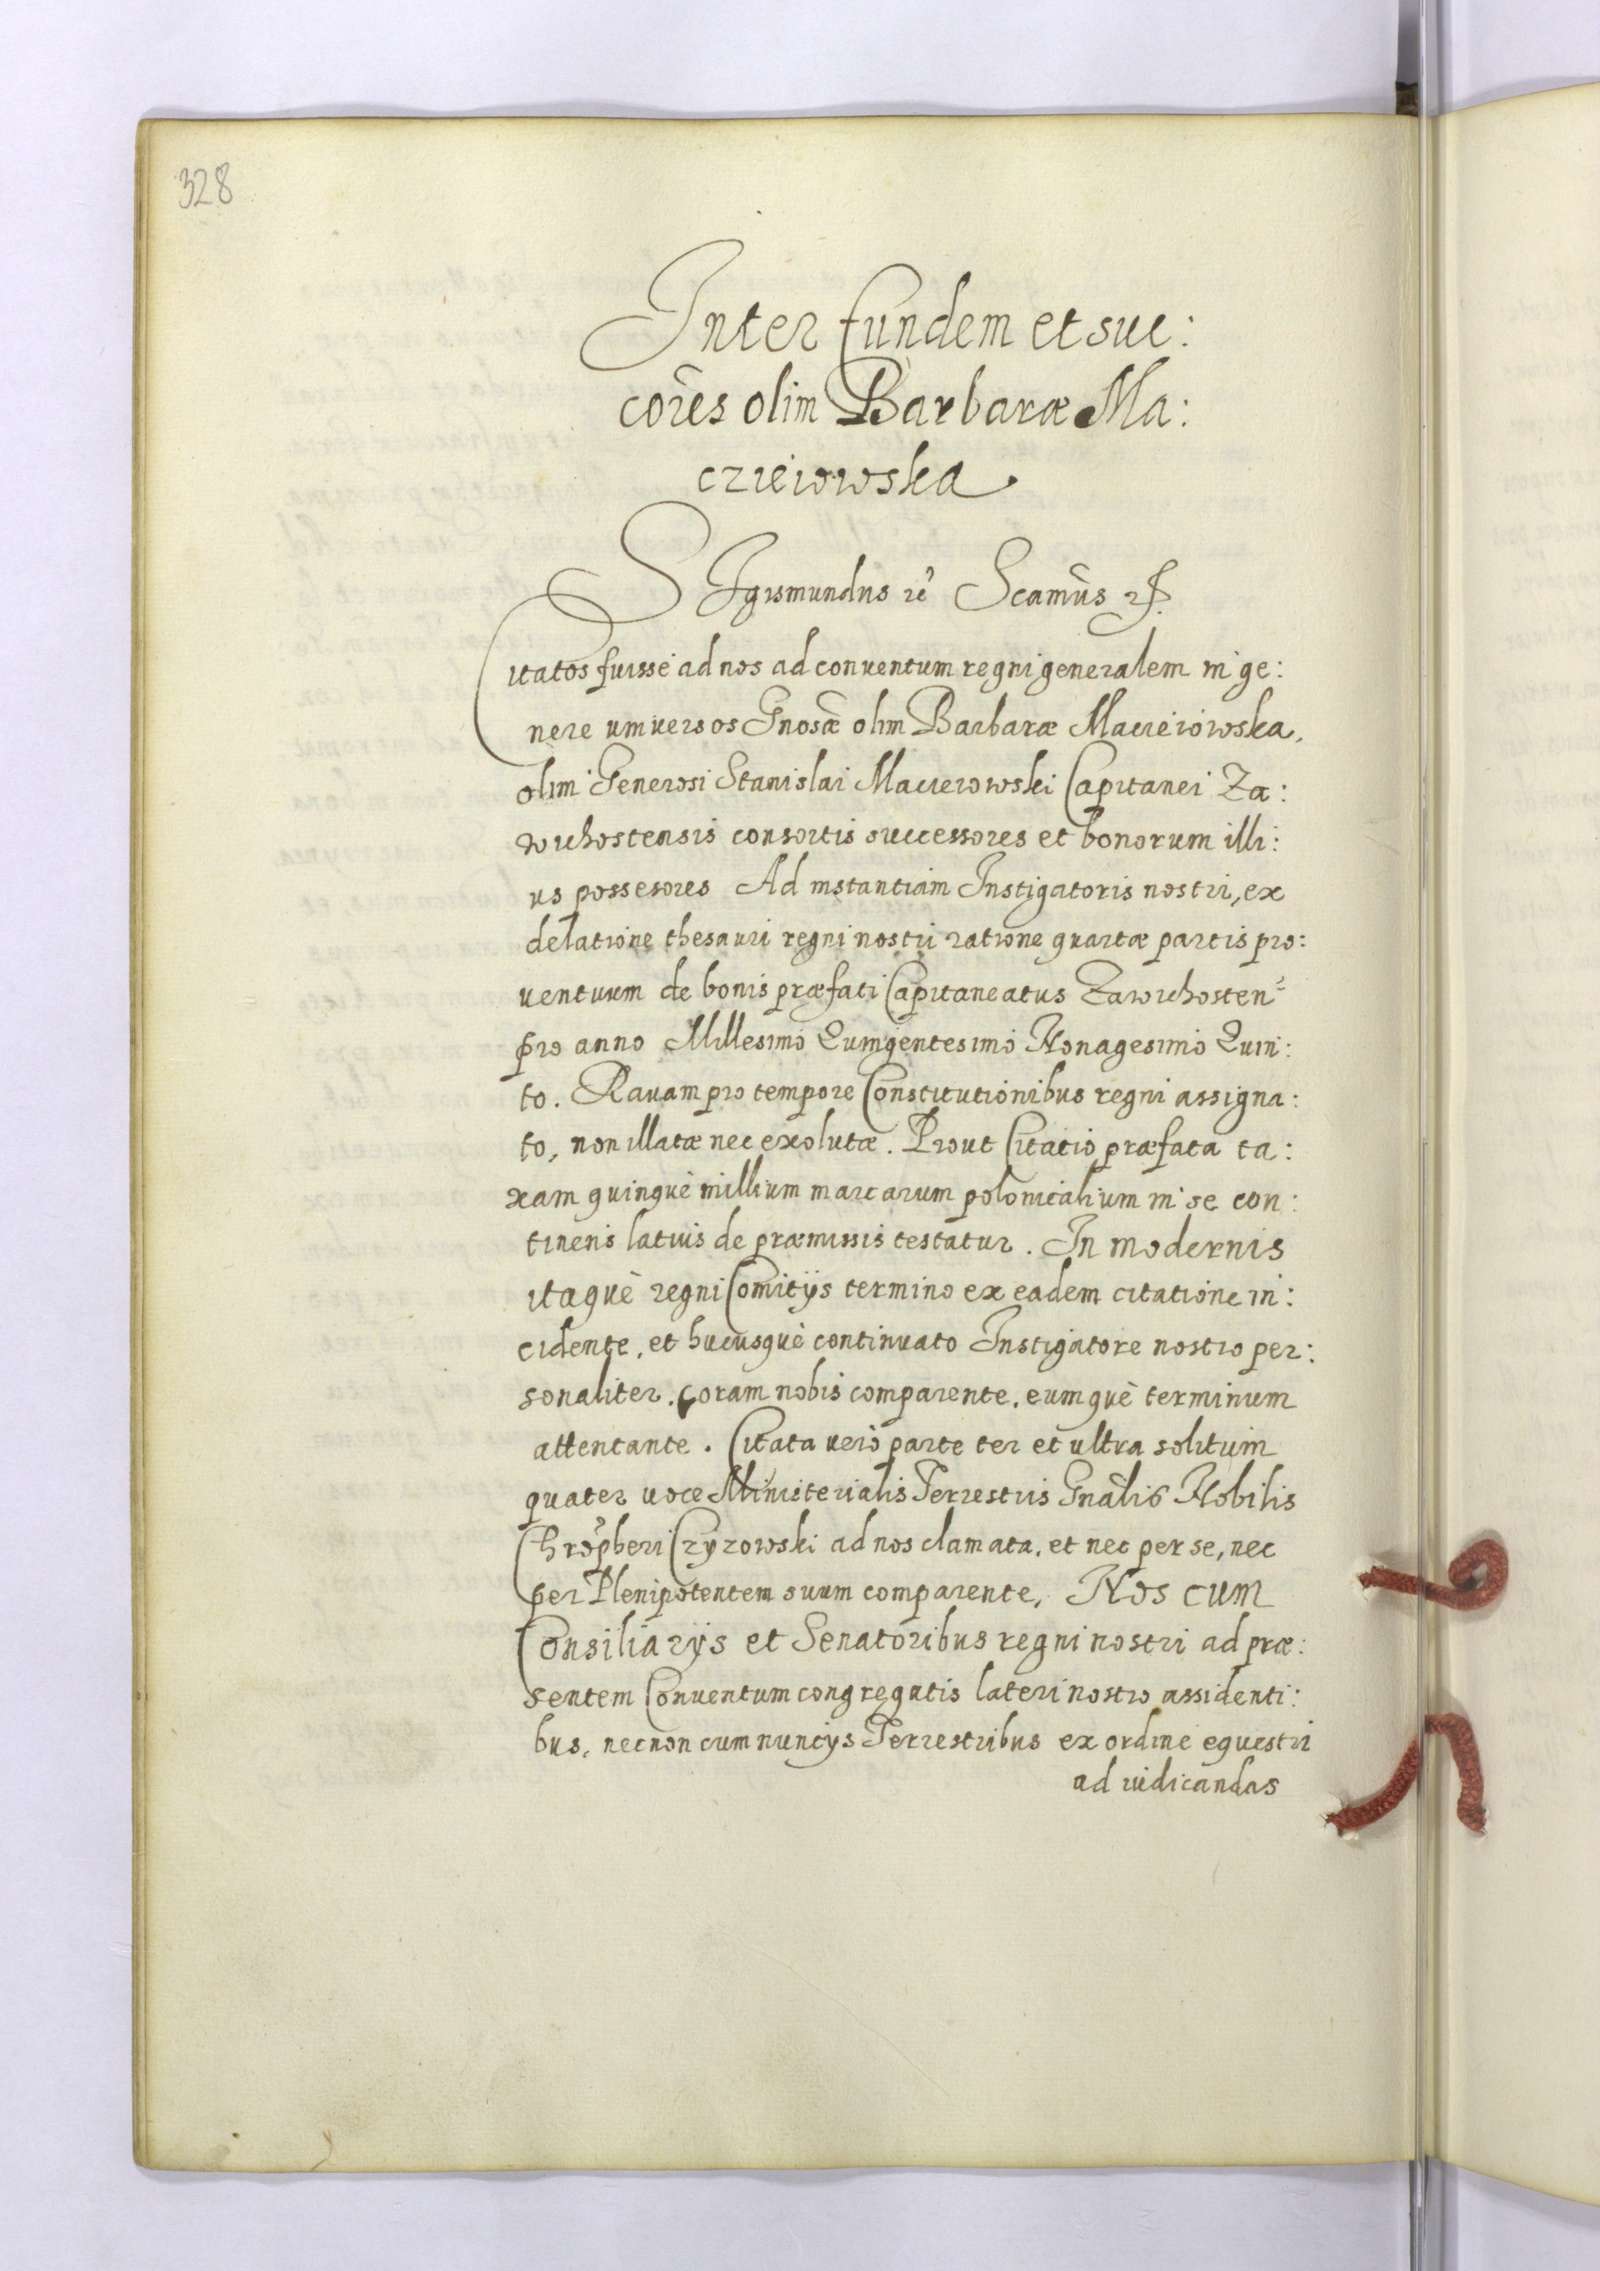 328
Inter Eundem et suc:
cōres olim Barbaræ Ma:
czieiowska
SIgismundus
itatos fuisse ad nos ad conventum regni generalem in ge:
nere universos Gnosæ olim Barbaræ Macieiowska,
olim Generosi Stanislai Macieiowski Capitanei Za:
wichostensis consortis successores et bonorum illi:
us possesores Ad instantiam Instigatoris nostri, ex
delatione thesauri regni nostri ratione quartæ partis pro:
ventuum de bonis præfati Capitaneatus Zawichosten
pro anno Millesimo Quingentesimo Nonagesimo Quin:
to. Ravam pro tempore Constitutionibus regni assigna:
to, non illatæ nec exolutæ. Prout Citatio præfata ta:
xam quinquè millium marcarum polonicalium in se con:
tinens latius de præmissis testatur. In modernis
itaquè regni Comitijs termino ex eadem citatione in:
cidente, et hucusquè continuato Instigatore nostro per:
sonaliter. Coram nobis comparente. eumquè terminum
attentante. Citata vero parte ter et ultra solitum
quater voce Ministerialis Terrestris Gnālis Nobilis
Chropheri Czyzowski ad nos clamata. et nec per se, nec
per Plenipotentem suum comparente, Nos cum
Consiliarijs et Senatoribus regni nostri ad præ:
sentem Conventum congregatis lateri nostro assidenti:
bus, necnon cum nuncijs Terrestribus ex ordine equestri
ad iudicandas